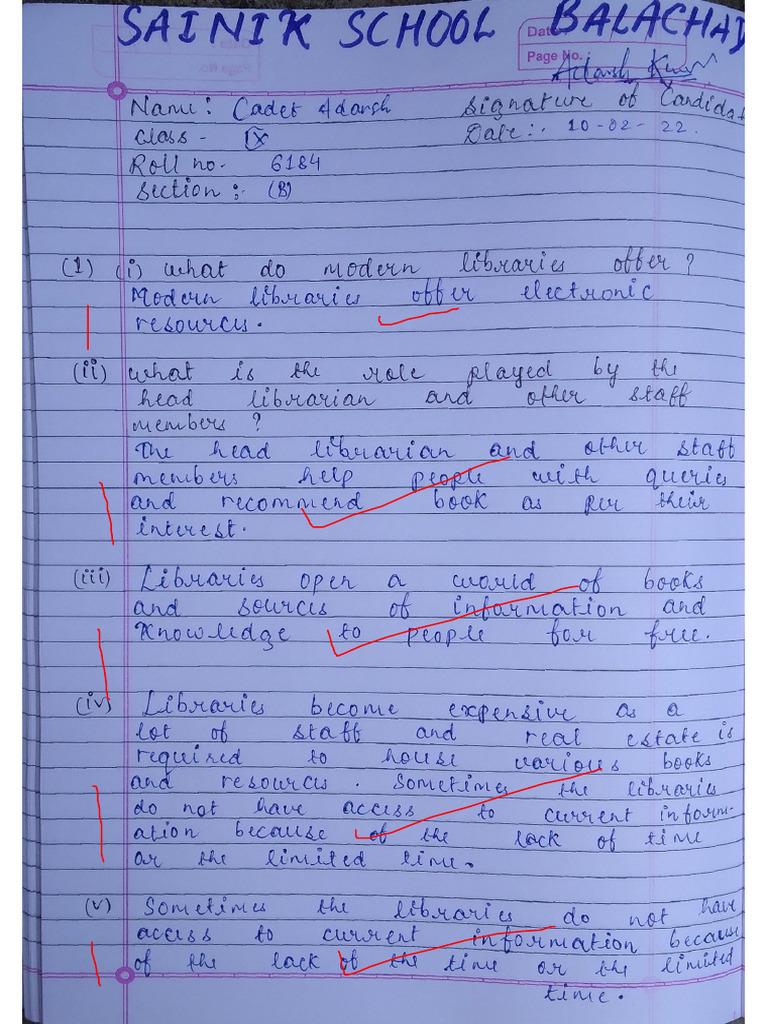 SAINIK SCHOOL BALACHADI
Date
Page No.
Adarsh Kumar
Name: Cadet Adarsh Signature of Candidat
Class - IX Date:. 10-02-22.
Roll no. 6184
Section:- (B)
(1) (i) What do modern libraries offer?
Modern libraries offer electronic
resources.
(ii) What is the role played by the
head librarian and other staff
members?
The head librarian and other staff
members help people with queries
and recommend book as per their
interest.
(iii) Libraries open a world of books
and sources of information and
Knowledge to people for free.
(iv) Libraries become expensive as a
lot of staff and real estate is
required to house various books
and resources. Sometimes the libraries
do not have access to current inform-
ation because of the lack of time
or the limited time.
(v) Sometimes the libraries do not have
access to current information because
of the lack of the time or the limited
time.